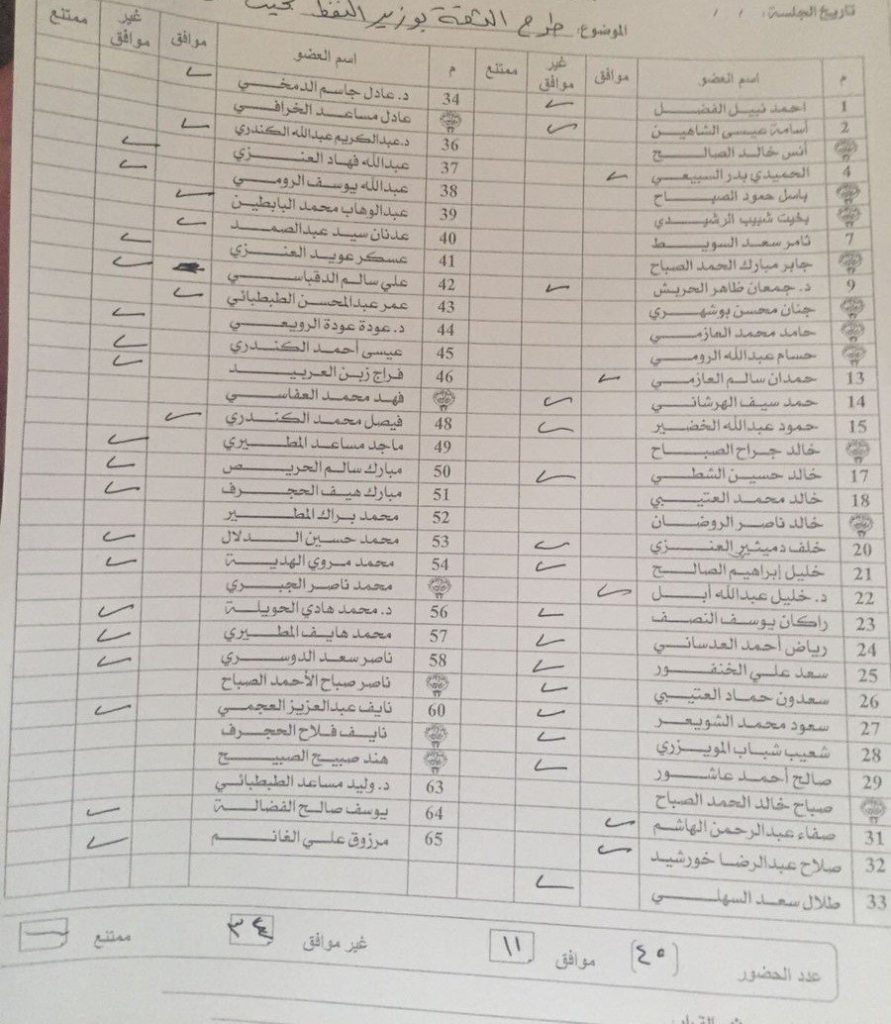 تاريخ الجلسة: / /
الموضوع: طرح الثقة بوزير النفط بخيت
م اسم العضو موافق غير موافق ممتنع
1 احمد نبيل الفضل
2 أسامة عيسى الشاهين
أنس خالد الصالح
4 الحميدي بدر السبيعي
باسل حمود الصباح
بخيت شبيب الرشيدي
7 ثامر سعد السويط
جابر مبارك الحمد الصباح
9 د. جمعان ظاهر الحربش
جنان محسن بوشهري
حامد محمد العازمي
حسام عبدالله الرومي
13 حمدان سالم العازمي
14 حمد سيف الهرشاني
15 حمود عبدالله الخضير
خالد جراح الصباح
17 خالد حسين الشطي
18 خالد محمد العتيبي
خالد ناصر الروضان
20 خلف دميثير العنزي
21 خليل إبراهيم الصالح
22 د. خليل عبدالله أبل
23 راكان يوسف النصف
24 رياض أحمد العدساني
25 سعد علي الخنفور
26 سعدون حماد العتيبي
27 سعود محمد الشويعر
28 شعيب شباب المويزري
29 صالح أحمد عاشور
صباح خالد الحمد الصباح
31 صفاء عبدالرحمن الهاشم
32 صلاح عبدالرضا خورشيد
33 طلال سعد السهلي
م اسم العضو موافق غير موافق ممتنع
34 د. عادل جاسم الدمخي
عادل مساعد الخرافي
36 د.عبدالكريم عبدالله الكندري
37 عبدالله فهاد العنزي
38 عبدالله يوسف الرومي
39 عبدالوهاب محمد البابطين
40 عدنان سيد عبدالصمد
41 عسكر عويد العنزي
42 علي سالم الدقباسي
43 عمر عبدالمحسن الطبطبائي
44 د. عودة عودة الرويعي
45 عيسى أحمد الكندري
46 فراج زبن العربيد
فهد محمد العفاسي
48 فيصل محمد الكندري
49 ماجد مساعد المطيري
50 مبارك سالم الحريص
51 مبارك هيف الحجرف
52 محمد براك المطير
53 محمد حسين الدلال
54 محمد مروي الهدية
محمد ناصر الجبري
56 د. محمد هادي الحويلة
57 محمد هايف المطيري
58 ناصر سعد الدوسري
ناصر صباح الأحمد الصباح
60 نايف عبدالعزيز العجمي
نايف فلاح الحجرف
هند صبيح الصبيح
63 د. وليد مساعد الطبطبائي
64 يوسف صالح الفضالة
65 مرزوق علي الغانم
عدد الحضور (٤٥) موافق ١١ غير موافق ٣٤ ممتنع —